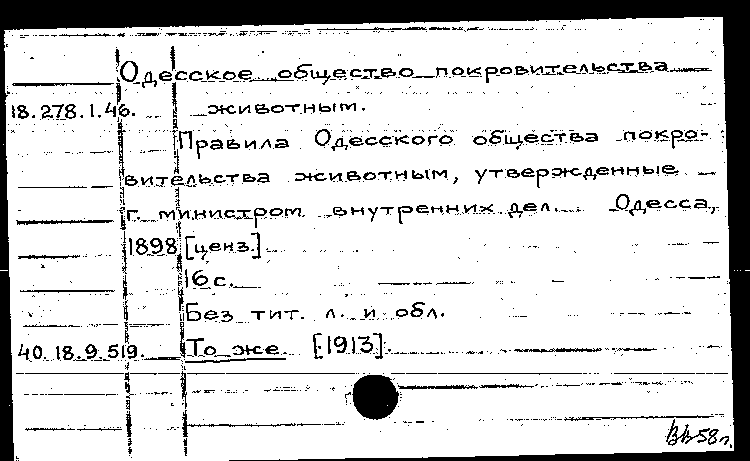 Одесское общество покровительства
18.278.1.46. животным.
Правила Одесского общества покро-
вительства животным, утвержденные
г. министром внутренних дел. Одесса,
1898 [ценз.]
16 с.
Без тит. л. и обл.
40.18.9.519. То же [1913].
58 г.